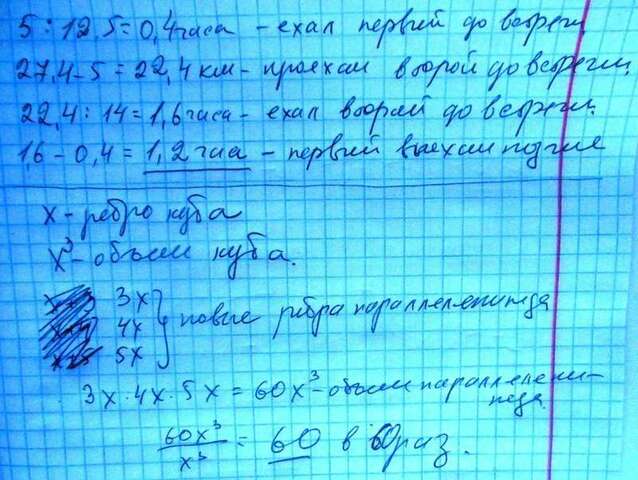 5 : 12,5 = 0,4 часа - ехал первый до встречи
27,4 - 5 = 22,4 км - проехал второй до встречи
22,4 : 14 = 1,6 часа - ехал второй до встречи
1,6 - 0,4 = 1,2 часа - первый выехал позже
x - ребро куба
x³ - объём куба.
3x
4x } новые рёбра параллелепипеда
5x
3x · 4x · 5x = 60x³ - объём параллелепи-
педа
60x³/x³ = 60 в 60 раз.